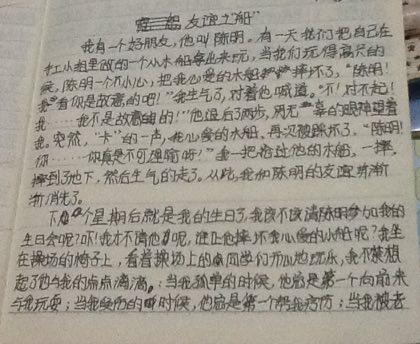 友谊之船"
我有一个好朋友,他叫陈明。有一天我们把自己在
红小组里做的一个小水船拿出来玩,当我们玩得高兴的时
候,陈明一个不小心,把我心爱的水船摔坏了,"陈明!
我看你是故意的吧!"我生气了,对着他喊道。"不!对不起!
我……我不是故意的的!"他退后了两步,用无辜的眼神望着
我。突然,"卡"的一声,我心爱的水船,再次被踩坏了。"陈明!
你……你真是不可理喻呀!"我一把抢过他的水船,一摔,
摔到了地下,然后生气的走了。从此,我和陈明的友谊渐渐
渐消失了。
下个星期后就是我的生日了,我该不该请陈明参加我的
生日会呢?吓!我才不请他呢,谁让他摔坏我心爱的小船呢?我坐
在操场的椅子上,看着操场上的同学们开心地玩乐,我不禁想
起了他与我的点点滴滴,:当我孤单的时候,他总是第一个向前来
与我玩耍;当我受伤的时候,他总是第一个帮我疗伤;当我被老